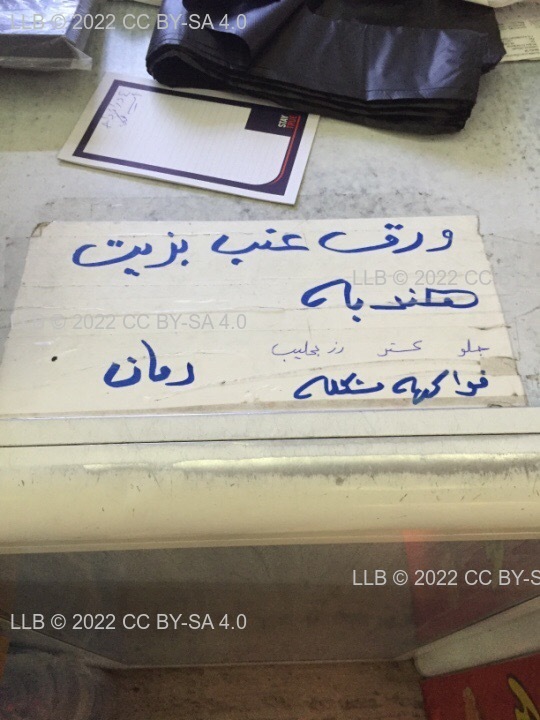 LLB © 2022 CC BY-SA 4.0
STAY
ورق عنب بزيت
LLB © 2022 CC
هندباه
LLB © 2022 CC BY-SA 4.0
جلو كستر رز بحليب
رمان
فواكهه مشكله
LLB © 2022 CC BY-S
LLB © 2022 CC BY-SA 4.0